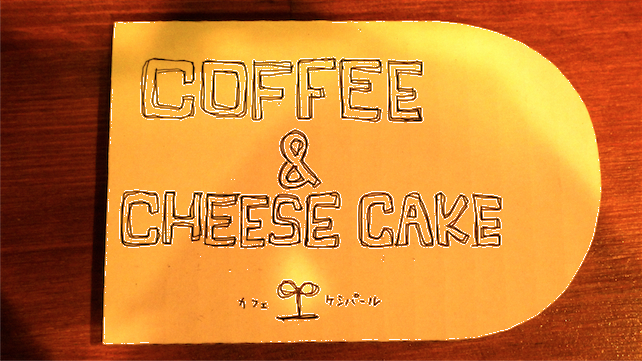 COFFEE
&
CHEESE CAKE
カフェ ケシパール